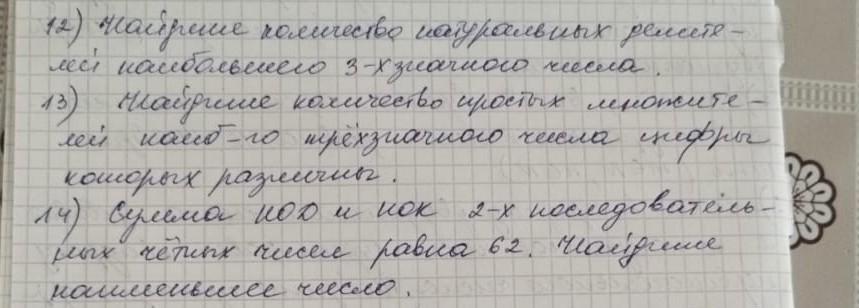 12) Найдите количество натуральных делите-
лей наибольшего 3-х значного числа.
13) Найдите количество простых множите-
лей наиб-го трёхзначного числа цифры
которых различны.
14) Сумма НОД и НОК 2-х последователь-
ных чётных чисел равна 62. Найдите
наименьшее число.